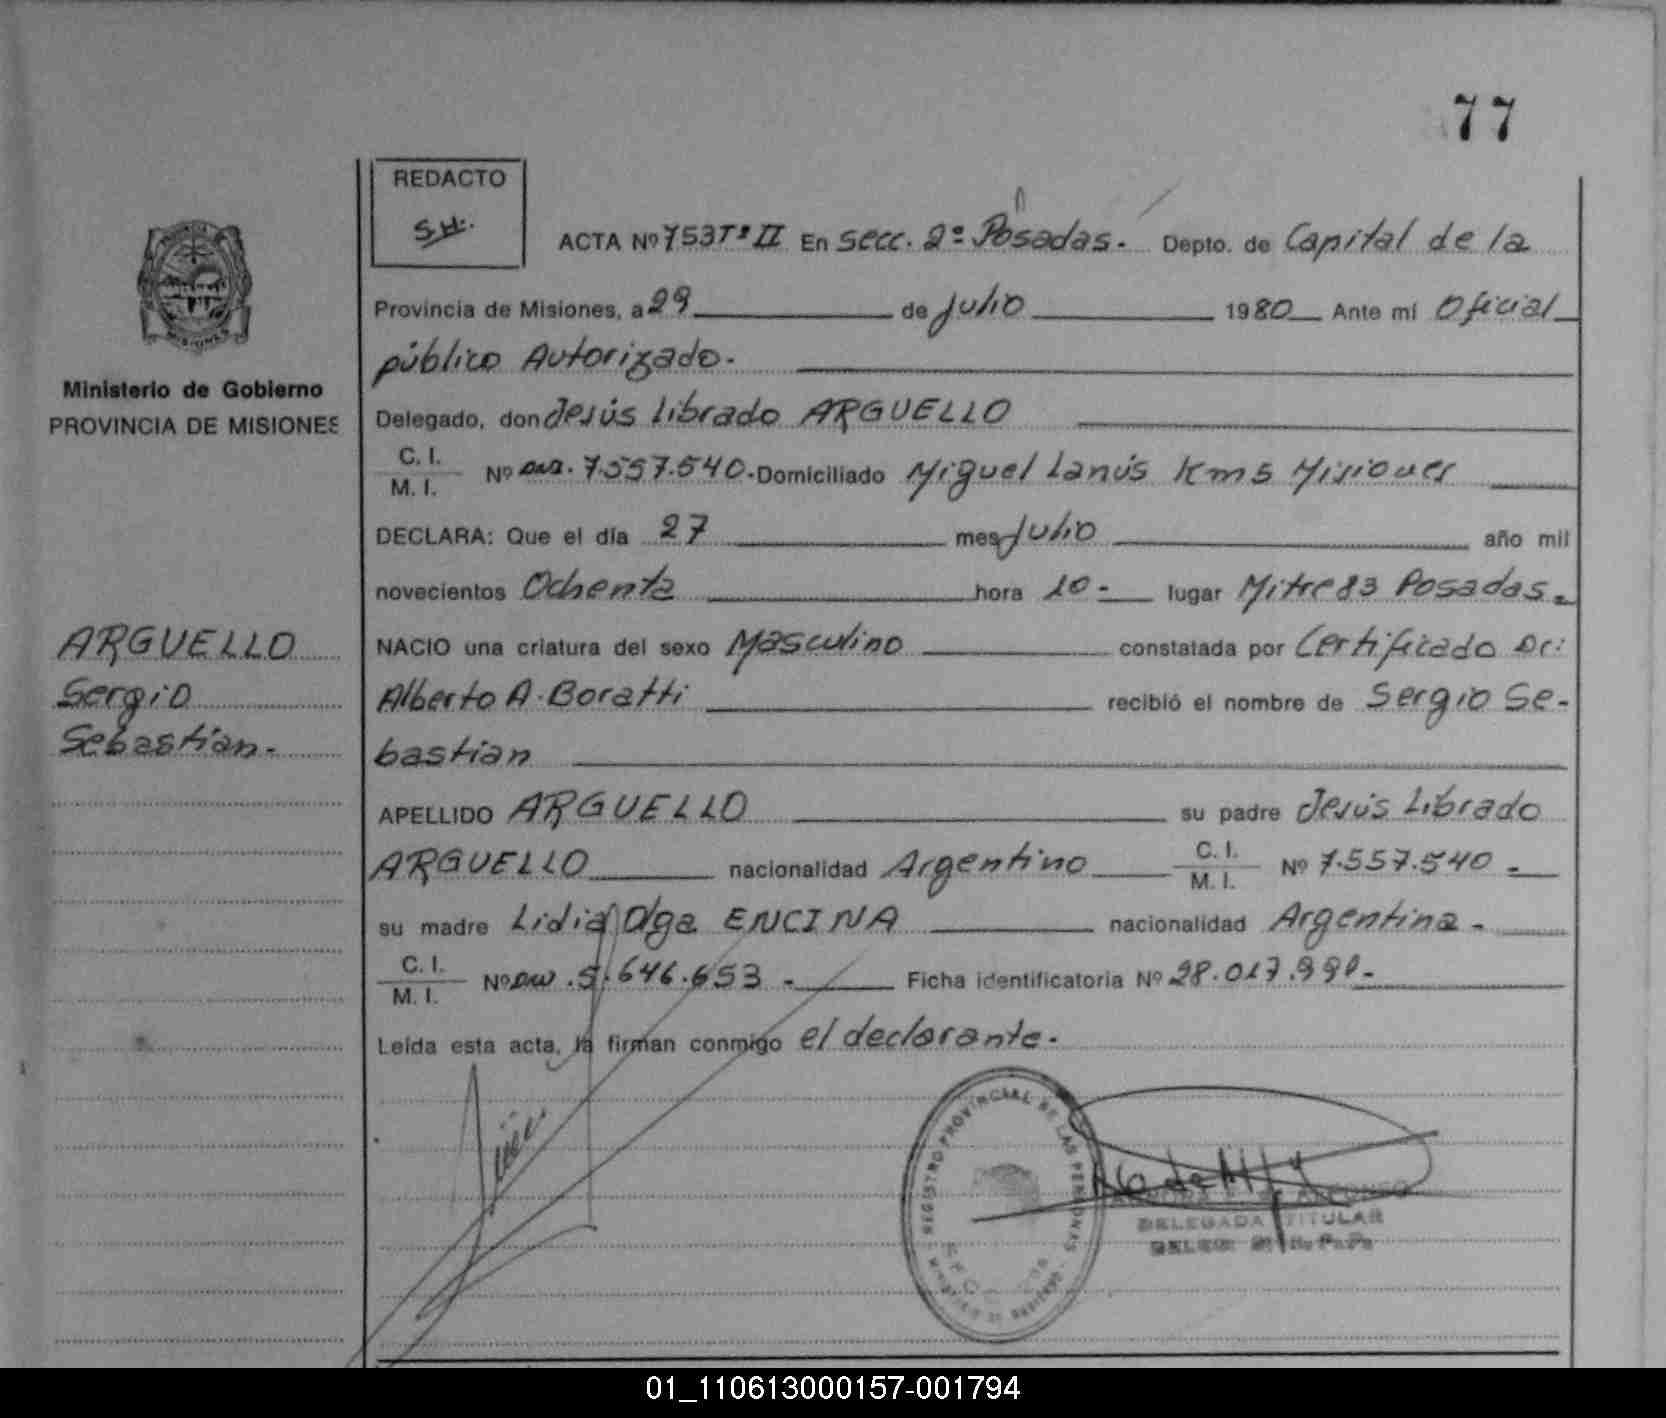 77
REDACTO
S.H.
ACTA Nº 753 Tº II En Secc. 2º Posadas. Depto. de Capital de la
Provincia de Misiones, a 29 de Julio 1980 Ante mi Oficial
público Autorizado.
Delegado, don Jesús Librado ARGUELLO
C. I.
M. I.
Nº 7.557.540. Domiciliado Miguel Lanús Km 5 Misiones
DECLARA: Que el día 27 mes Julio año mil
novecientos Ochenta hora 10 - lugar Mitre 83 Posadas.
NACIO una criatura del sexo Masculino constatada por Certificado Dr:
Alberto A. Boratti recibió el nombre de Sergio Se-
bastian
APELLIDO ARGUELLO su padre Jesús Librado
ARGUELLO nacionalidad Argentino C. I. M. I. Nº 7.557.540 -
su madre Lidia Olga ENCINA nacionalidad Argentina -
C. I.
M. I.
Nº 5.646.653 - Ficha identificatoria Nº 28.017.990 -
Leída esta acta, la firman conmigo el declarante.
Ministerio de Gobierno
PROVINCIA DE MISIONES
ARGUELLO
Sergio
Sebastian.
MISIONES
REGISTRO PROVINCIAL DE LAS PERSONAS
DELEGADA TITULAR
01_110613000157-001794